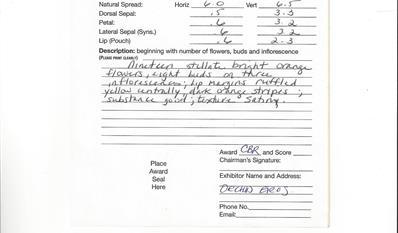 Natural Spread: Horiz 6.0 Vert 6.5
Dorsal Sepal: .5 3.3
Petal: .6 3.2
Lateral Sepal (Syns.) .6 3.2
Lip (Pouch) .6 2.3
Description: beginning with number of flowers, buds and inflorescence
(PLEASE PRINT CLEARLY)
Nineteen stellate bright orange
flowers, eight buds on three
inflorescences; lip margins ruffled
yellow centrally, dark orange stripes;
substance good; texture satiny.
Award CBR and Score
Chairman's Signature:
Place
Award
Seal
Here
Exhibitor Name and Address:
Phone No.
Email: